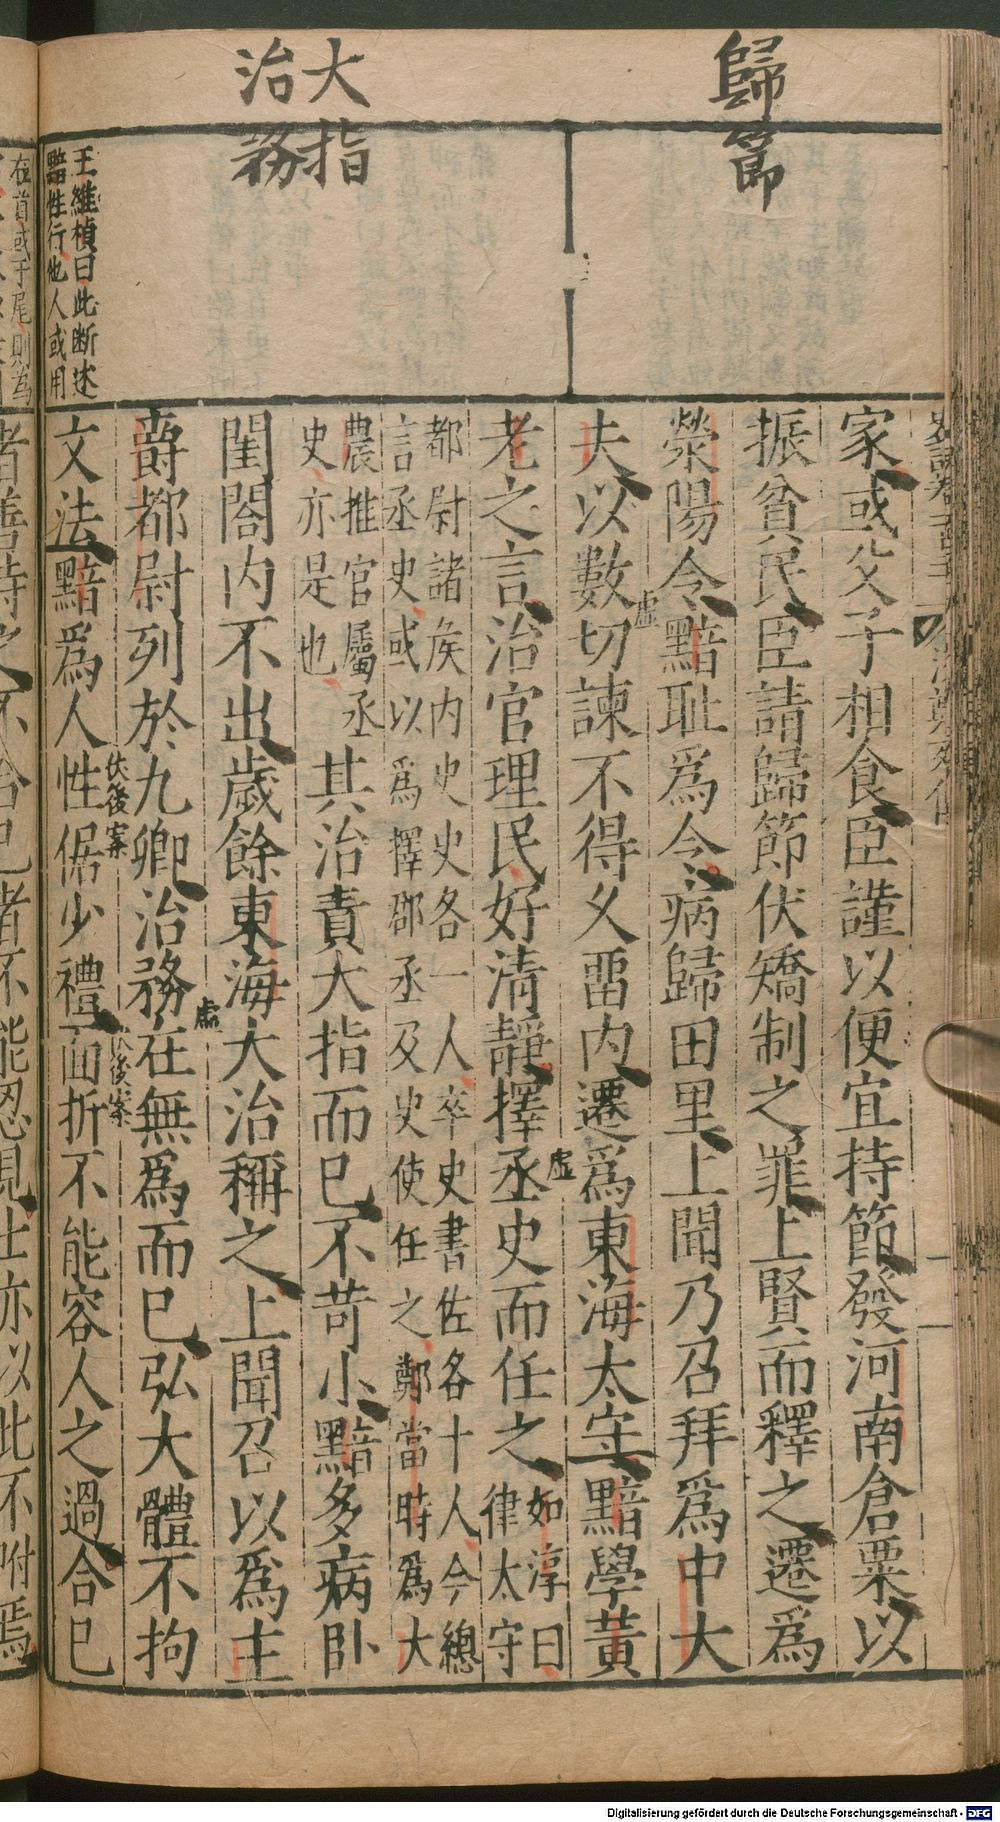 歸節
大指
治務
家或父子相食臣謹以便宜持節發河南倉粟以
振貧民臣請歸節伏矯制之罪上賢而釋之遷爲
滎陽令黯耻爲令病歸田里上聞乃召拜爲中大
夫以數切諫不得久畱內遷爲東海太守黯學黃
老之言治官理民好清靜擇丞史而任之如淳曰
律太守
都尉諸矦內史史各一人卒史書佐各十人今總
言丞史或以爲擇郡丞及史使任之鄭當時爲大
農推官屬丞
史亦是也
其治責大指而已不苛小黯多病臥
閨閤內不出歲餘東海大治稱之上聞召以爲主
爵都尉列於九卿治務在無爲而已弘大體不拘
文法黯爲人性倨少禮面折不能容人之過合己
虛
虛
虛
伏後案
伏後案
王維楨曰此断述
黯性行他人或用
在首或于尾則爲
者善待之不合己者不能忍見士亦以此不附焉
Digitalisierung gefördert durch die Deutsche Forschungsgemeinschaft - DFG